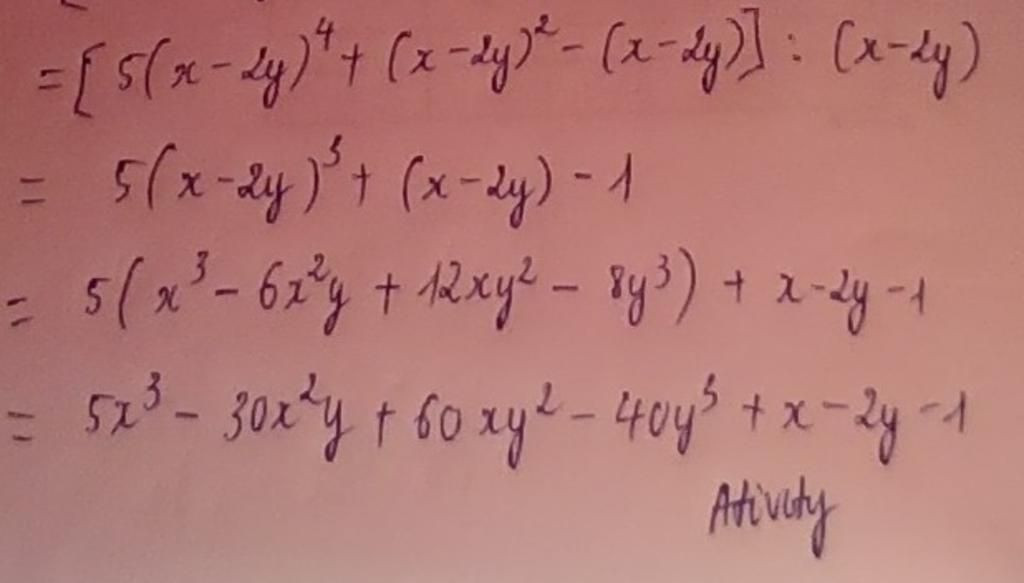 = [ 5(x - 2y)⁴ + (x - 2y)² - (x - 2y)] : (x - 2y)
= 5(x - 2y)³ + (x - 2y) - 1
= 5(x³ - 6x²y + 12xy² - 8y³) + x - 2y - 1
= 5x³ - 30x²y + 60xy² - 40y³ + x - 2y - 1
Ativity